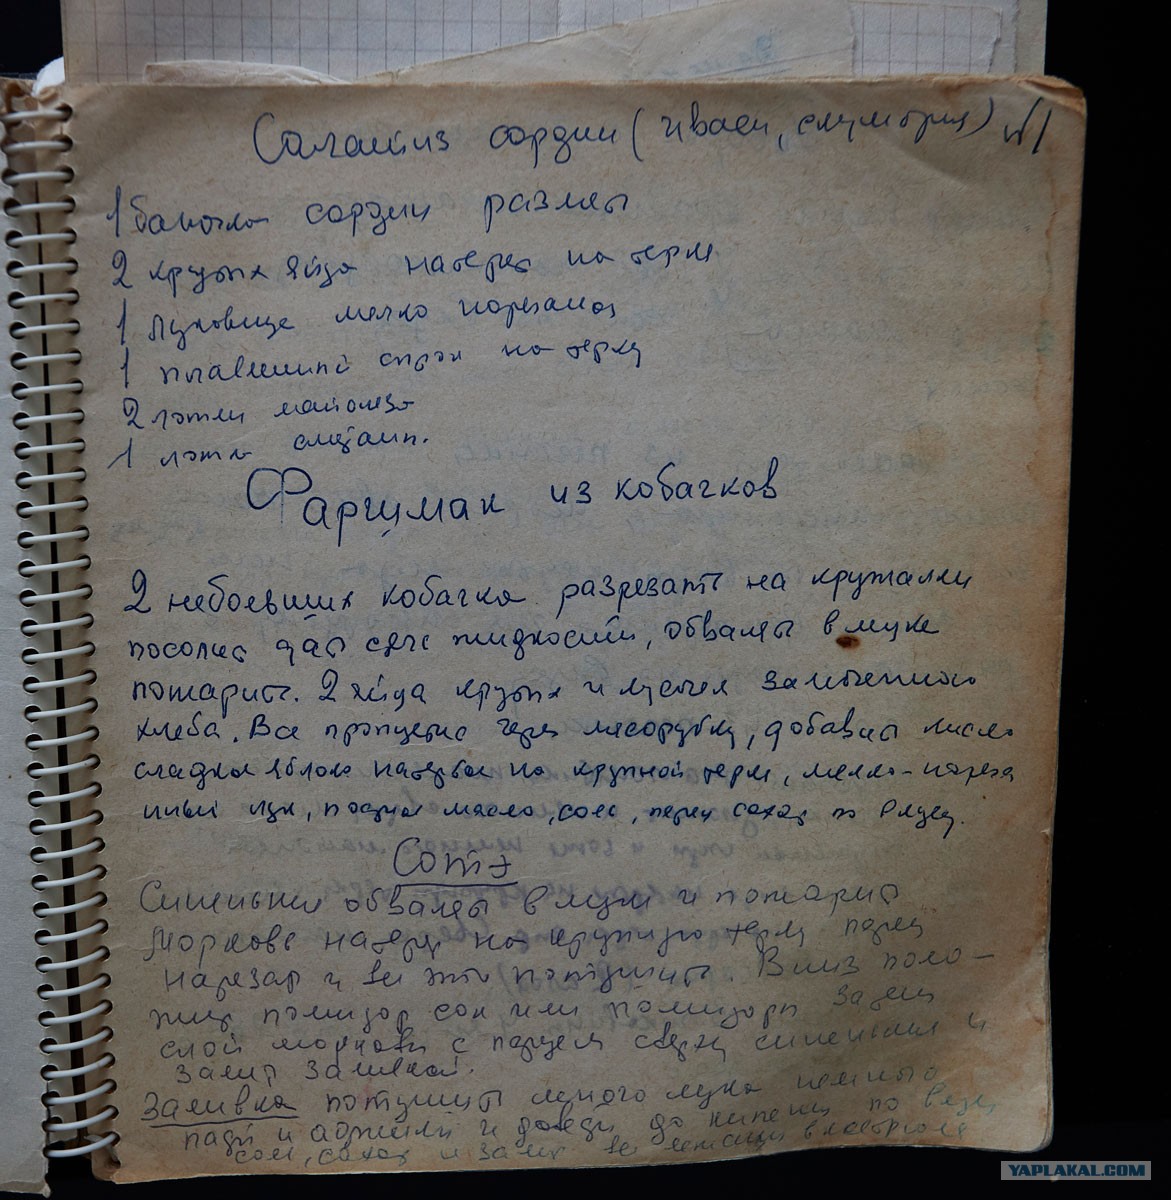 Салат из сардин (иваси, скумбрия) №1
1 баночка сардин размять
2 крутых яйца натереть на терке
1 луковица мелко порезаная
1 плавленный сырок на терку
2 ложки майонеза
1 ложка сметаны.
Фаршмак из кобачков
2 небоевших кобачка разрезать на кружалки
посолить дать сок жидкости, обвалять в муке
пожарить. 2 яйца крутых и кусочек замоченного
хлеба. Все пропустить через мясорубку, добавить кисло
сладкое яблоко натертое на крупной терке, мелко-нареза
нный лук, постное масло, соль, перец сахар по вкусу.
Сотэ
Синенькие обвалять в муке и пожарить
Морковь натереть на крупную терку перец
нарезать и все это потушить. Вниз поло-
жить помидор сок или помидоры затем
слой моркови с перцем сверху синенькие и
залить заливкой.
Заливка потушить много лука немного
и аджики и доведи до кипения по вкусу
соль, сахар и залить все
YAPLAKAL.COM